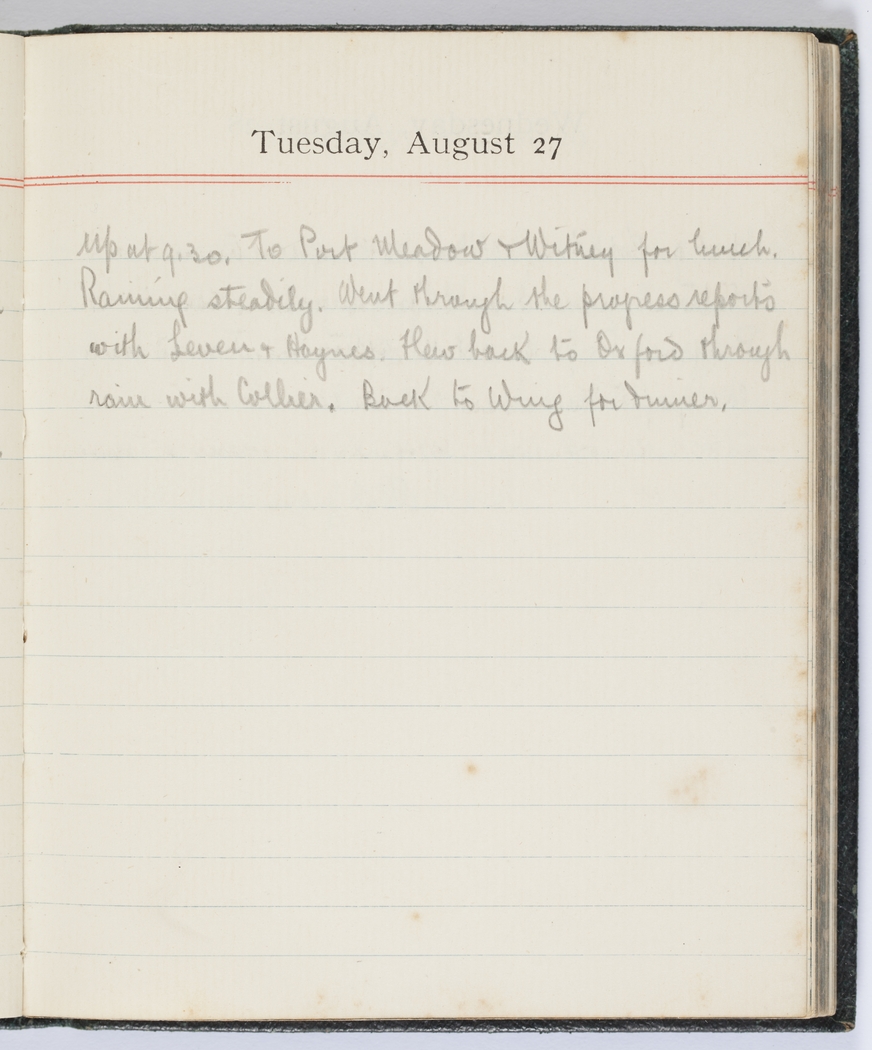 Tuesday, August 27
Up at 9.30. To Port Meadow & Witney for lunch.
Raining steadily. Went through the progress reports
with Leven & Haynes. Flew back to Oxford through
rain with Collier. Back to Wing for dinner.